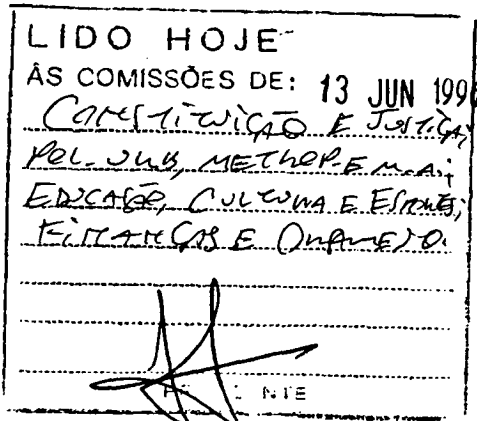 LIDO HOJE
ÀS COMISSÕES DE: 13 JUN 199
CONSTITUIÇÃO E JUSTIÇA;
POL. URB, METROP. E M.A.;
EDUCAÇÃO, CULTURA E ESPORTES;
FINANÇAS E ORÇAMENTO.